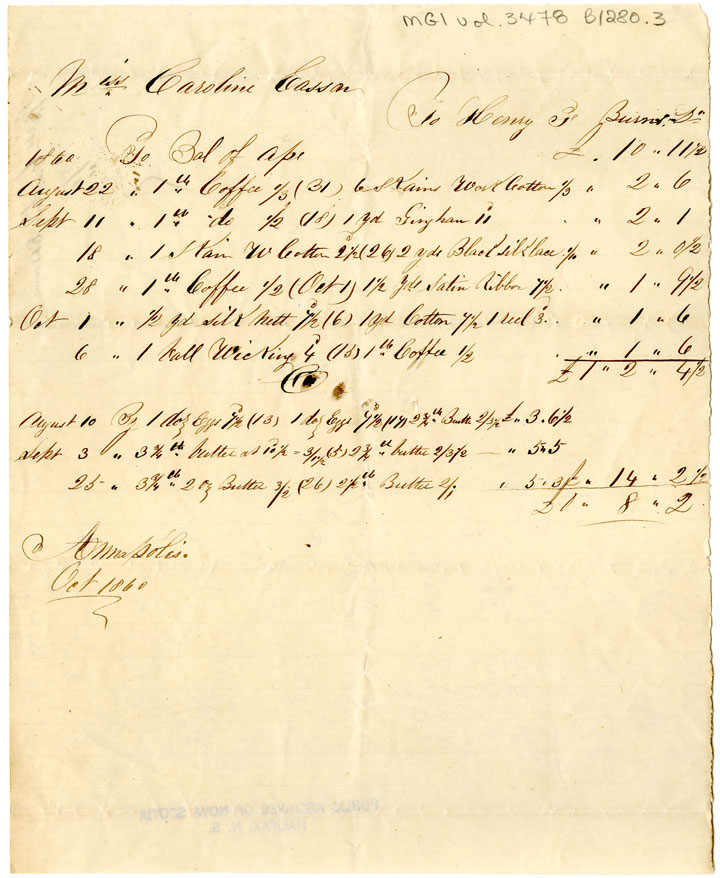 MG1 vol. 3478 B1280.3
Miss Caroline Cassan
To Henry Burns Dr
1860 To Bal of apc £ . 10 " 11 1/2
August 22 " 1 lb Coffee 1/3 (31) 6 Skains Work Cotton 1/3 " 2 " 6
Sept 11 " 1 lb do 1/2 (18) 1 yd Gingham 11 " 2 " 1
18 " 1 Skain W Cotton 2 1/2 (26) 2 yds Black silk lace " 2 " 0 1/2
28 " 1 lb Coffee 1/2 (Oct 1) 1 1/2 yds Satin Ribbon 7 1/2 . " 1 " 9 1/2
Oct 1 " 1/2 yd silk nett 7 1/2 (6) 1 yd Cotton 7 1/2 1 reel 3 . " 1 " 6
6 " 1 ball Wicking 4 (13) 1 lb Coffee 1/2 " 1 " 6
£ 1 " 2 " 4 1/2
August 10 By 1 doz Eggs 7 1/2 (13) 1 doz Eggs 7 1/2 (17) 2 3/4 lb Butter 2/3 1/2 £ " 3 . 6 1/2
Sept 3 " 3 3/4 lb butter at 10 1/2 = 3/1 1/2 (5) 2 3/4 lb butter 2/3 1/2 — " 5 " 5
25 " 3 3/4 lb 2 oz Butter 3/2 (26) 2 1/2 lb Butter 2/1 " 5 . 3 " 14 " 2 1/2
£ 0 " 8 " 2
Annapolis.
Oct 1860
PUBLIC ARCHIVES OF NOVA SCOTIA
HALIFAX, N. S.